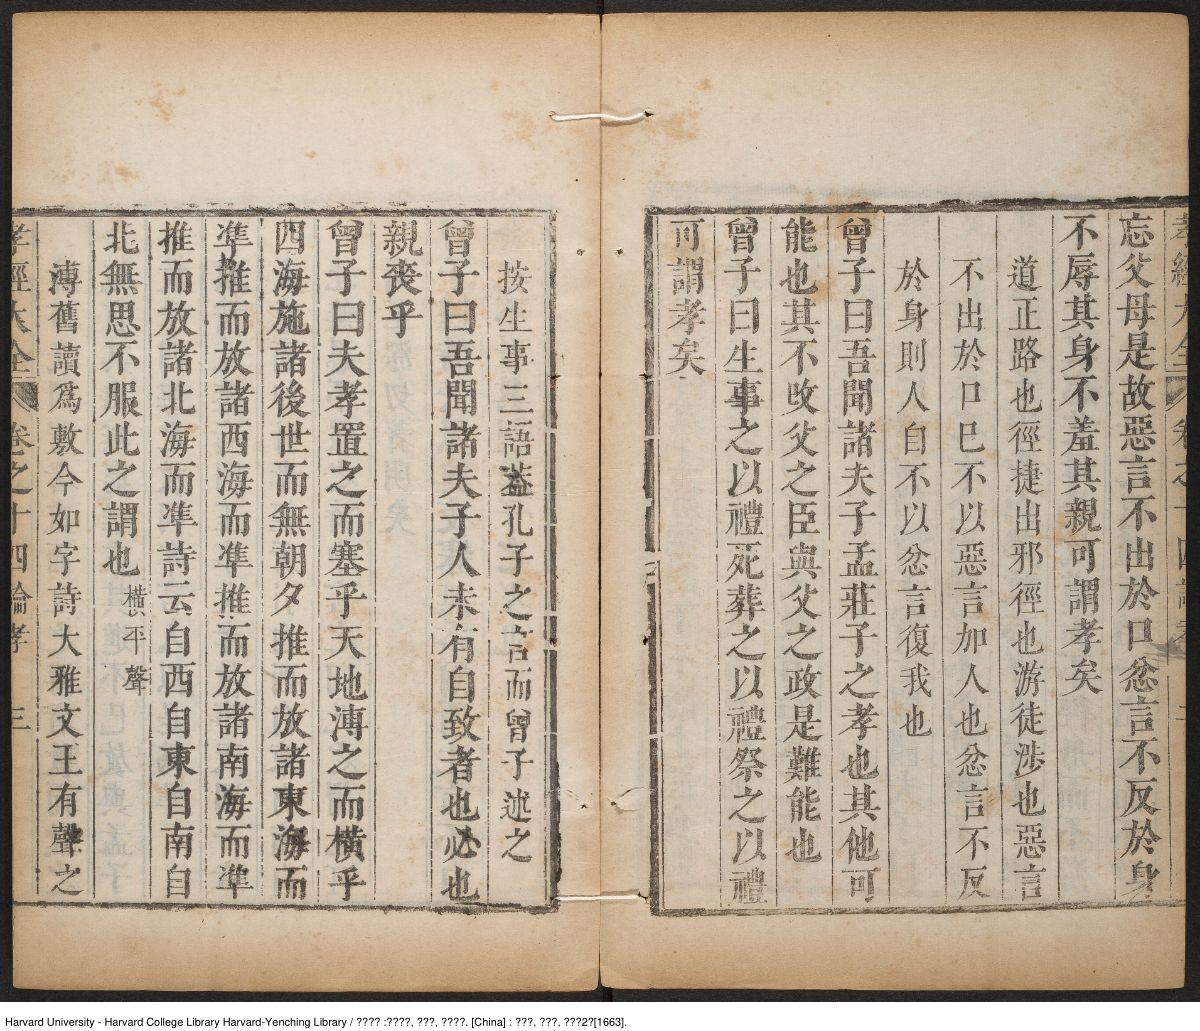 孝經大全 卷之十四論孝 二
忘父母是故惡言不出於口忿言不反於身
不辱其身不羞其親可謂孝矣
道正路也徑捷出邪徑也游徒涉也惡言
不出於口巳不以惡言加人也忿言不反
於身則人自不以忿言復我也
曾子曰吾聞諸夫子孟莊子之孝也其他可
能也其不改父之臣與父之政是難能也
曾子曰生事之以禮死葬之以禮祭之以禮
可謂孝矣
按生事三語葢孔子之言而曾子述之
曾子曰吾聞諸夫子人未有自致者也必也
親喪乎
曾子曰夫孝置之而塞乎天地溥之而橫乎
四海施諸後世而無朝夕推而放諸東海而
準推而放諸西海而準推而放諸南海而準
推而放諸北海而準詩云自西自東自南自
北無思不服此之謂也 橫平聲
溥舊讀爲敷今如字詩大雅文王有聲之
孝經大全 卷之十四論孝 三
Harvard University - Harvard College Library Harvard-Yenching Library / ???? :????, ???, ????. [China] : ???, ???, ???2?[1663].